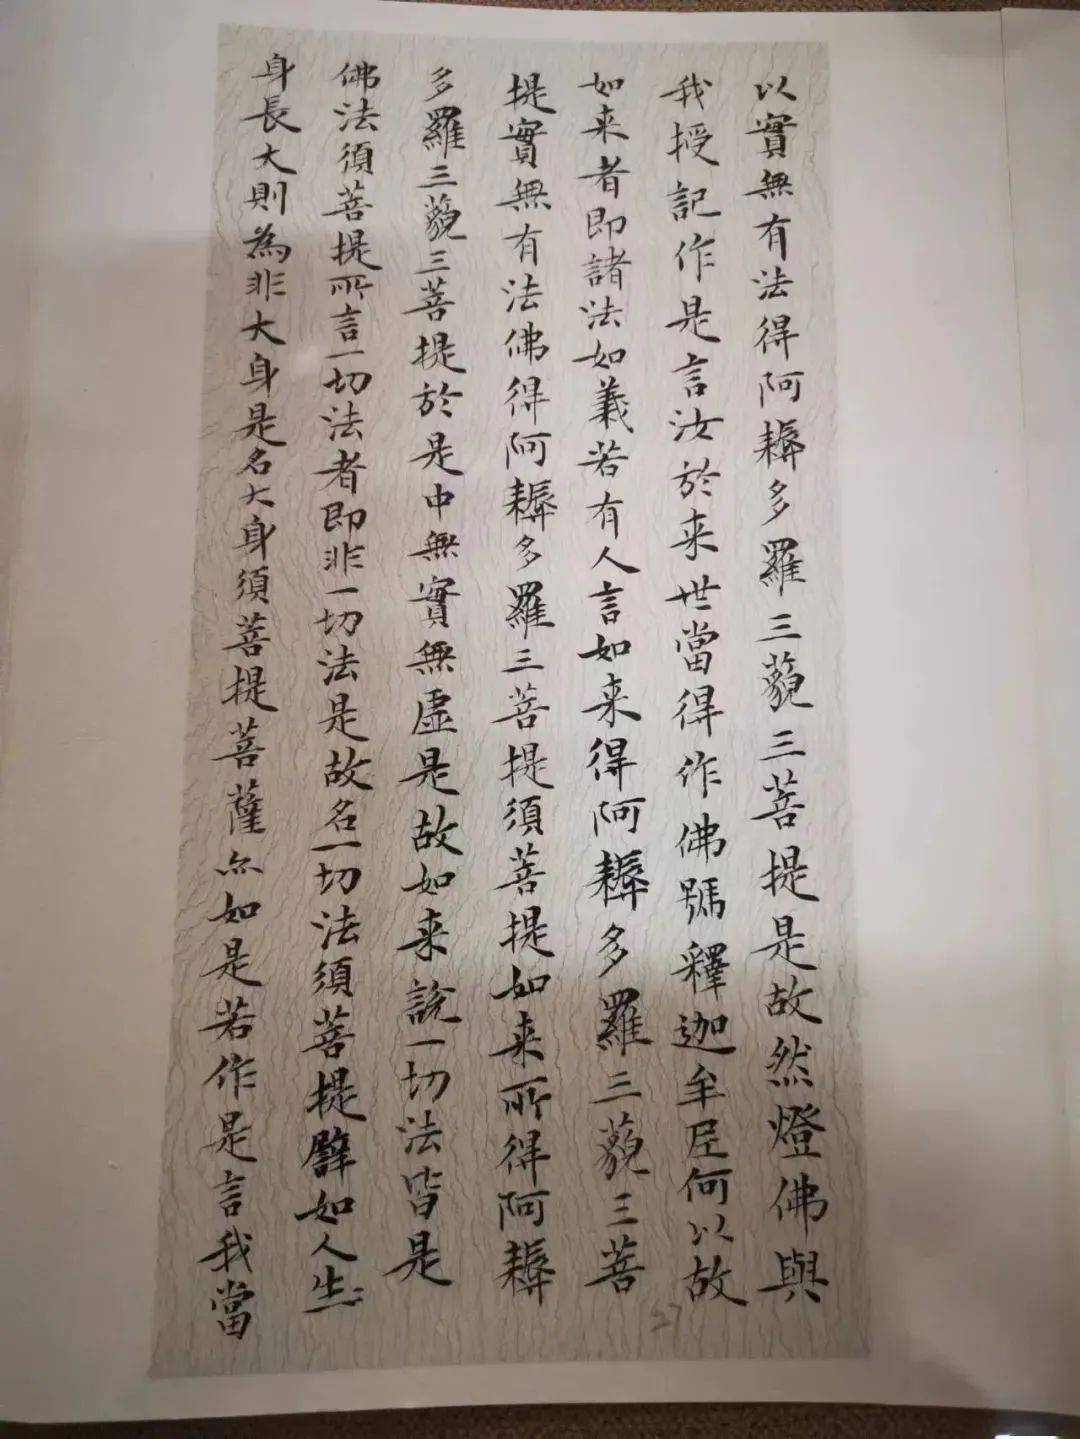 以實無有法得阿耨多羅三藐三菩提是故然燈佛與
我授記作是言汝於来世當得作佛號釋迦牟尼何以故
如来者即諸法如義若有人言如来得阿耨多羅三藐三菩
提實無有法佛得阿耨多羅三菩提須菩提如来所得阿耨
多羅三藐三菩提於是中無實無虛是故如来說一切法皆是
佛法須菩提所言一切法者即非一切法是故名一切法須菩提譬如人生
身長大則為非大身是名大身須菩提菩薩亦如是若作是言我當
27